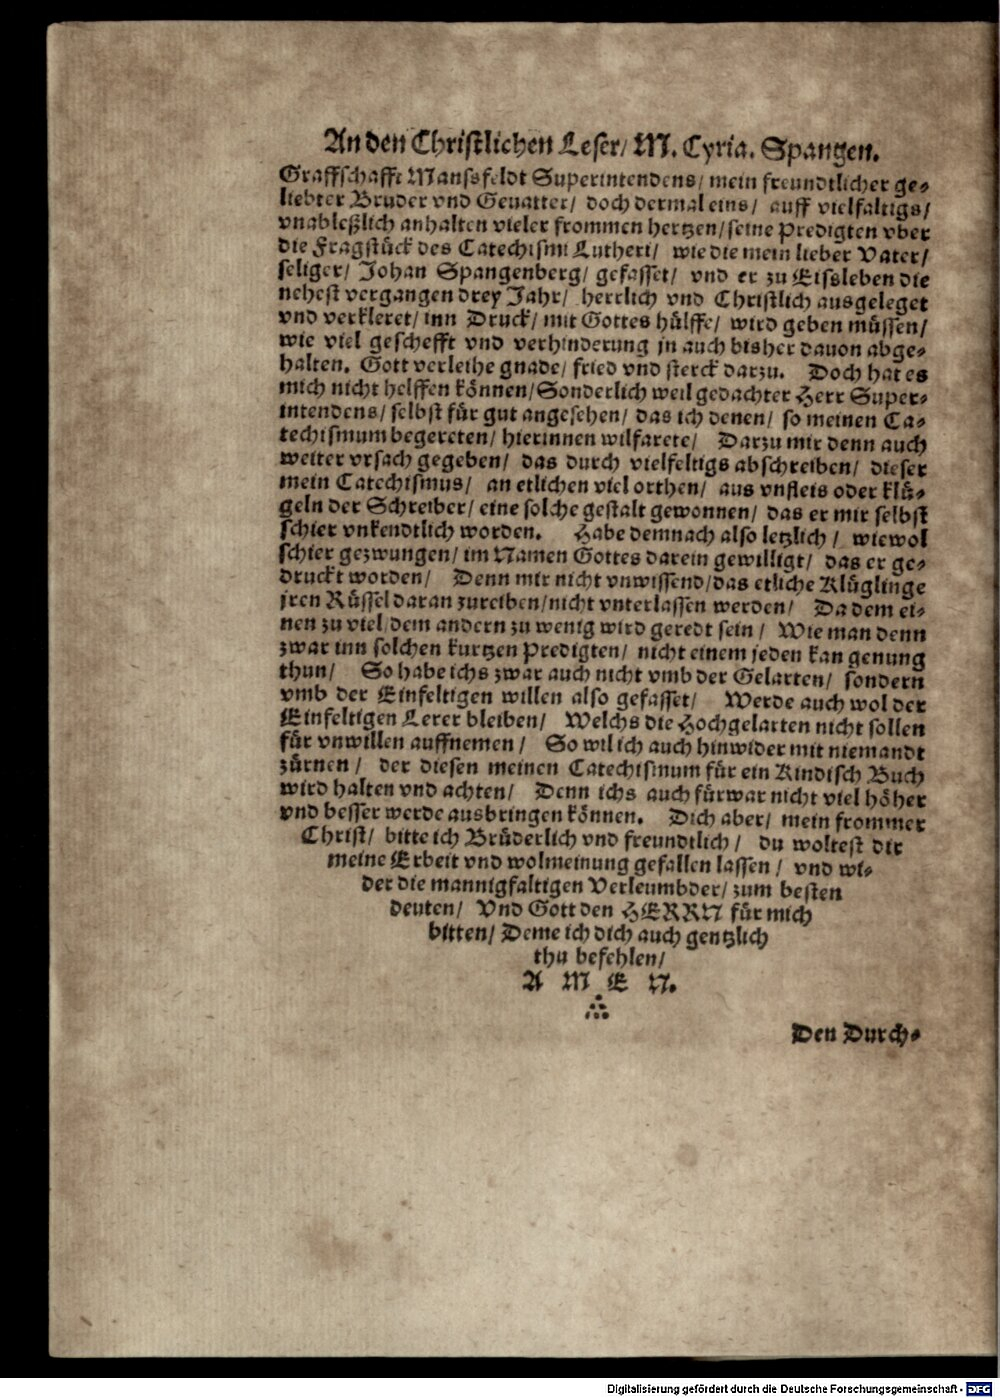 An den Christlichen Leser/ M. Cyria. Spangen.
Graffschafft Mansfeldt Superintendens/ mein freundtlicher ge⸗
liebter Bruder vnd Geuatter/ doch dermal eins/ auff vielfaltigs/
vnableßlich anhalten vieler frommen hertzen/ seine Predigten vber
die Fragstück des Catechismi Lutheri/ wie die mein lieber Vater/
seliger/ Johan Spangenberg/ gefasset/ vnd er zu Eisleben die
nehest vergangen drey Jahr/ herrlich vnd Christlich ausgeleget
vnd verkleret/ inn Druck/ mit Gottes hülffe/ wird geben müssen/
wie viel geschefft vnd verhinderung jn auch bisher dauon abge⸗
halten. Gott verleihe gnade/ fried vnd sterck darzu. Doch hat es
mich nicht helffen können/ Sonderlich weil gedachter Herr Super⸗
intendens/ selbst für gut angesehen/ das ich denen/ so meinen Ca⸗
techismum begereten/ hierinnen wilfarete/ Darzu mir denn auch
weiter vrsach gegeben/ das durch vielfeltigs abschreiben/ dieser
mein Catechismus/ an etlichen viel orthen/ aus vnfleis oder klü⸗
geln der Schreiber/ eine solche gestalt gewonnen/ das er mir selbst
schier vnkendtlich worden. Habe demnach also letzlich/ wiewol
schier gezwungen/ im Namen Gottes darein gewilligt/ das er ge⸗
druckt worden/ Denn mir nicht vnwissend/ das etliche Klüglinge
jren Rüssel daran zureiben/ nicht vnterlassen werden/ Da dem ei⸗
nen zu viel/ dem andern zu wenig wird geredt sein/ Wie man denn
zwar inn solchen kurtzen Predigten/ nicht einem jeden kan genung
thun/ So habe ichs zwar auch nicht vmb der Gelarten/ sondern
vmb der Einfeltigen willen also gefasset/ Werde auch wol der
Einfeltigen Lerer bleiben/ Welchs die Hochgelarten nicht sollen
für vnwillen auffnemen/ So wil ich auch hinwider mit niemandt
zürnen/ der diesen meinen Catechismum für ein Kindisch Buch
wird halten vnd achten/ Denn ichs auch fürwar nicht viel höher
vnd besser werde ausbringen können. Dich aber/ mein frommer
Christ/ bitte ich Brüderlich vnd freundtlich/ du woltest dir
meine Erbeit vnd wolmeinung gefallen lassen/ vnd wi⸗
der die mannigfaltigen Verleumbder/ zum besten
deuten/ Vnd Gott den HERRN für mich
bitten/ Deme ich dich auch gentzlich
thu befehlen/
A M E N.
Den Durch⸗
Digitalisierung gefördert durch die Deutsche Forschungsgemeinschaft - DFG